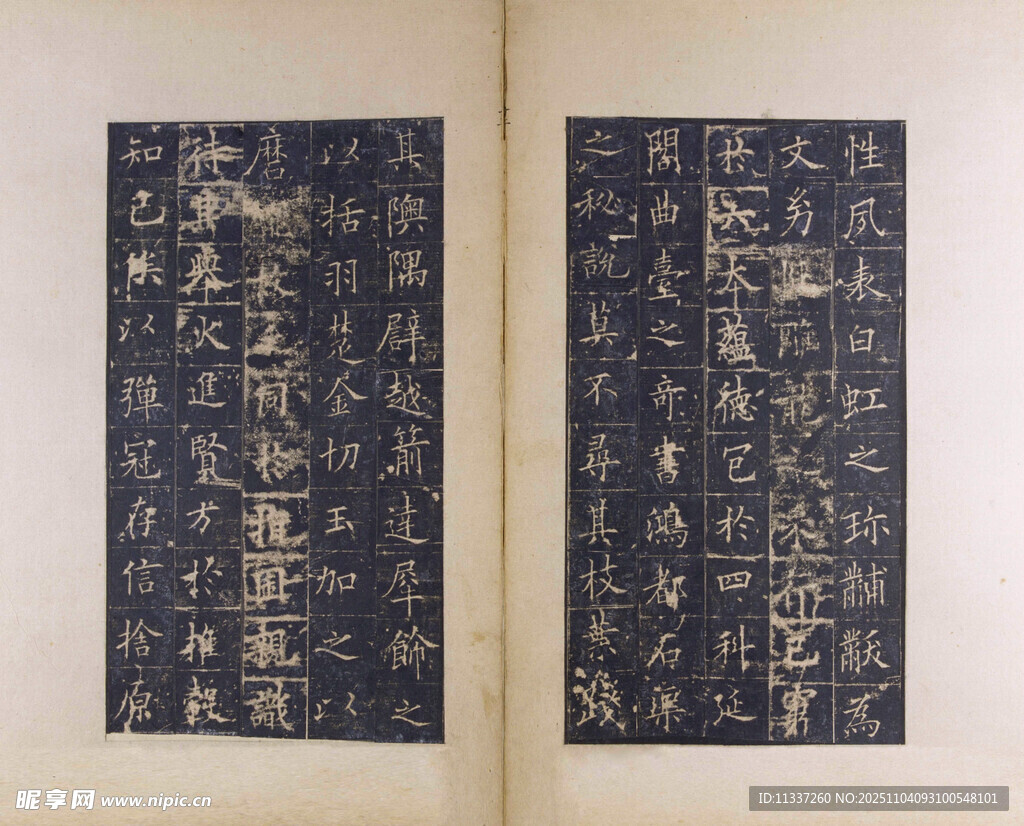 性夙表白虹之珎黼黻為
文雕龍不已
於六本蘊德包於四科延
閣曲臺之奇書鴻都石渠
之秘說莫不尋其枝葉踐
其隩隅辟越箭達犀飾之
以括羽楚金切玉加之以
磨之同於指囷親識
待其舉火進賢方於推轂
知己俟以彈冠存信捨原
昵享网 www.nipic.cn
ID:11337260 NO:20251104093100548101